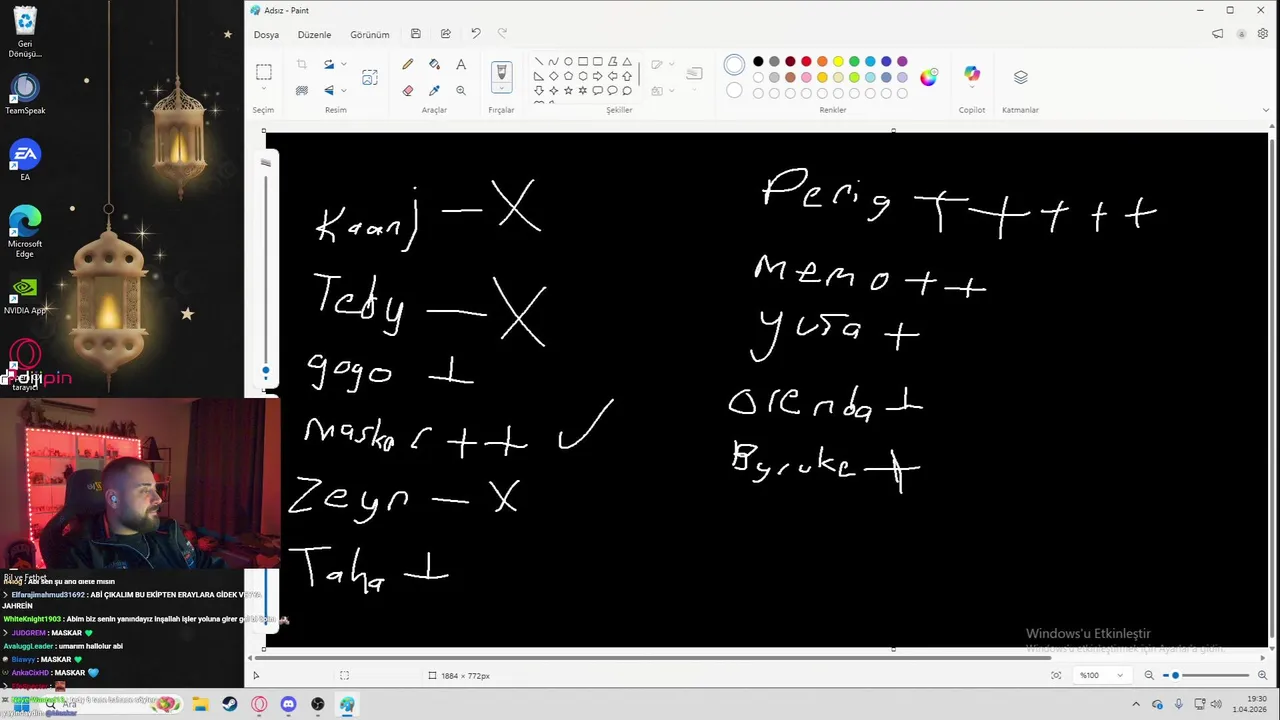 Adsız - Paint
Dosya Düzenle Görünüm
Seçim Resim Araçlar Fırçalar Şekiller Renkler Copilot Katmanlar
Geri Dönüşü...
TeamSpeak
EA
Microsoft Edge
NVIDIA App
tarayıcı
Kaanj — X
Teby — X
gogo +
maskar ++ ✓
Zeyn — X
Taha +
Perig +++++
memo ++
yusa +
orenda +
Byruke +
Bil ve Fethet
Abi sen şu and diete misin
Elfarajimahmud31692 : ABİ ÇIKALIM BU EKİPTEN ERAYLARA GİDEK
JAHREİN
WhiteKnight1903 : Abim biz senin yanındayız inşallah işler yoluna girer
JUDGREM : MASKAR 💚
AvaluggLeader : umarım hallolur abi
Blawyy : MASKAR 💚
AnkaCixHD : MASKAR 🩵
Windows'u Etkinleştir
Windows'u etkinleştirmek için Ayarlar'a gidin.
1884 × 772px
%100
Ara
19:30
1.04.2026